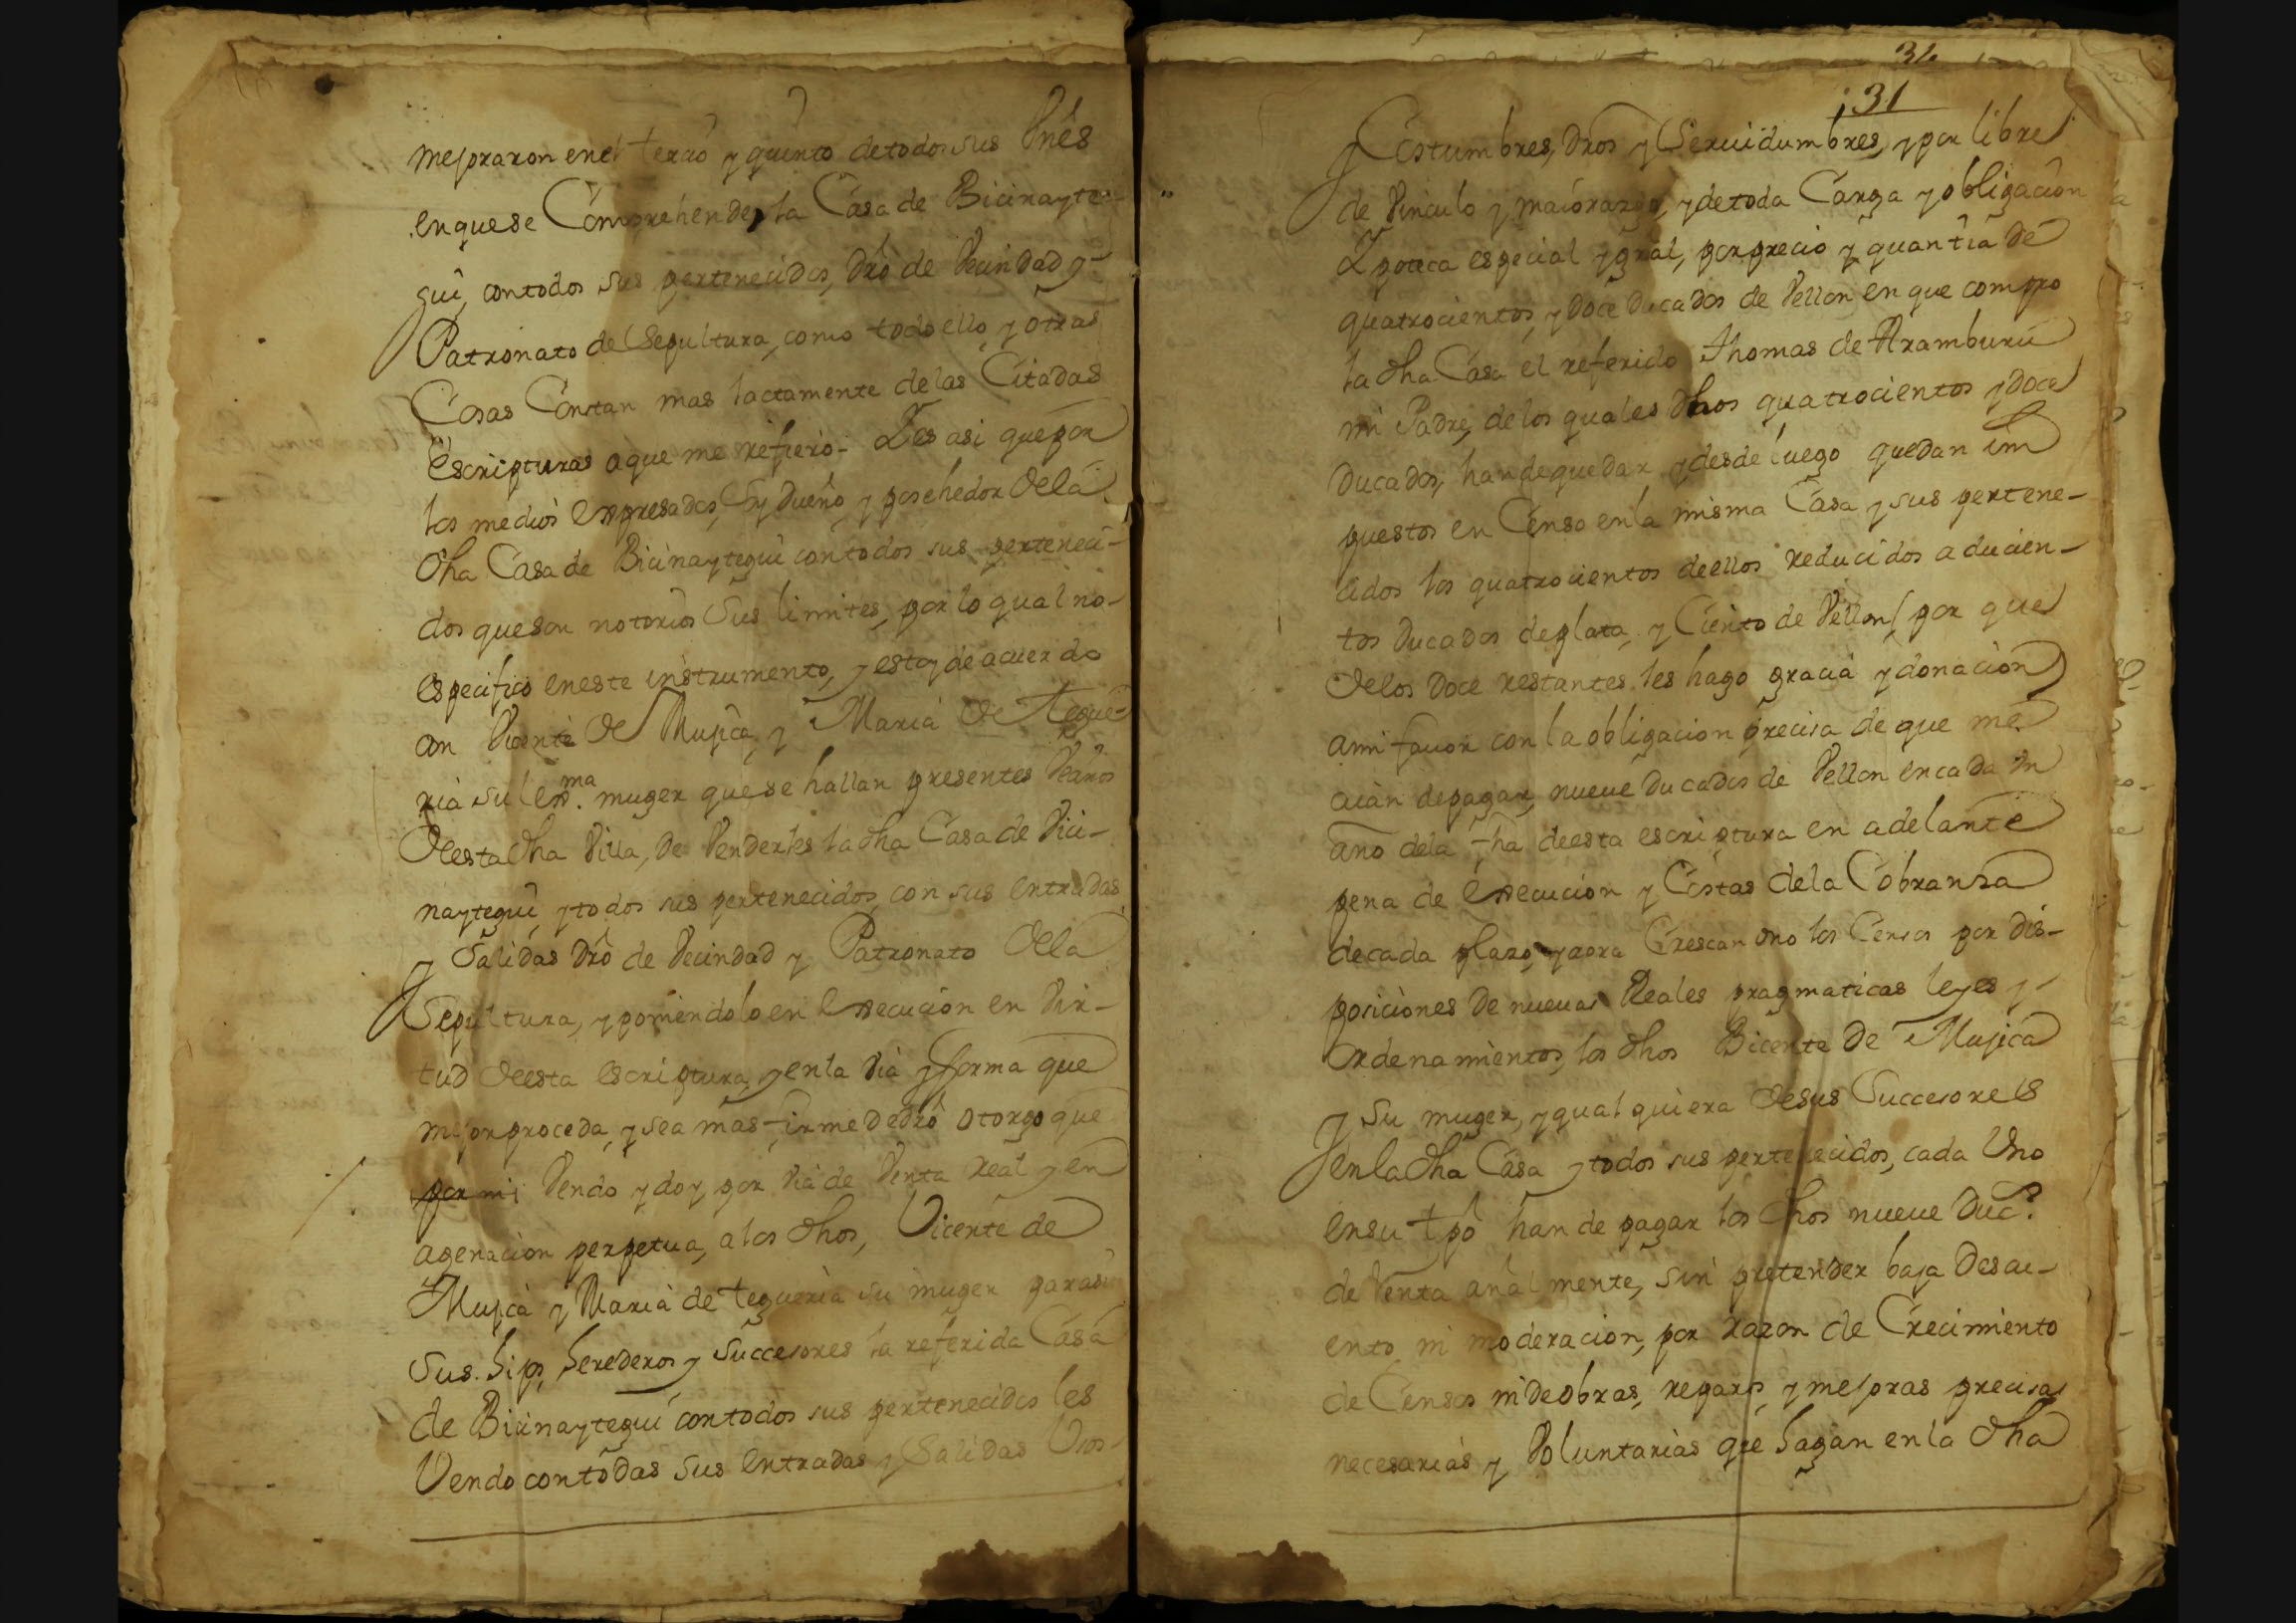 mejoraron en el tercio y quinto de todos sus Vnes
en que se Comprehende, la Casa de Bicinayte-
gui, con todos sus pertenecidos, dro de Vecindad y
Patronato de Sepultura, como todo ello, y otras
Cosas Constan mas lactamente de las Citadas
escripturas a que me refiero- Y es asi que por
los medios expresados, Soy dueño y posehedor de la
dha Casa de Bicinaytegui con todos sus perteneci-
dos que son notorios Sus limites, por lo qual no-
especifico en este instrumento, y estoy de acuerdo
con Vicente de Mujica, y Maria de Tegue-
ria su lexma. muger que se hallan presentes Veznos
de esta dha Villa, de Venderles la dha Casa de Vici-
naytegui, y todos sus pertenecidos, con sus entradas
y Salidas dro de Vecindad y Patronato de la
Sepultura, y poniendolo en execucion en Vir-
tud de esta escriptura, y en la Via y forma que
mejor proceda, y sea mas firme de dro otorgo que
por mi Vendo y doy, por Via de Venta Real y en
agenacion perpetua, a los dhos, Vicente de
Mujica y Maria de Tegueria su muger para si
sus hijos, herederos y Succesores la referida Casa
de Bicinaytegui con todos sus pertenecidos les
Vendo con todas sus entradas y Salidas Vsos-
31
131
Costumbres, dros y Seruidumbres, y por libre
de Vinculo y maiorazgo, y de toda Carga y obligacion
Ypoteca especial y gral, por precio y quantia de
quatrocientos, y doce ducados de Vellon en que compro
la dha Casa el referido Thomas de Aramburu
mi Padre, de los quales dhos quatrocientos y doce
ducados, han de quedar, y desde luego quedan im
puestos en Censo en la misma Casa y sus pertene-
cidos los quatrocientos de ellos reducidos a ducien-
tos ducados de plata, y Ciento de Vellon (por que
de los doce restantes les hago gracia y donacion)
a mi fauor con la obligacion precisa de que me
aian de pagar, nueue ducados de Vellon en cada Vn
año de la fha de esta escriptura en adelante
pena de execucion y Costas de la Cobranza
de cada plazo, y aora Crescan o no los Censos por dis-
posiciones de nueuas Reales pragmaticas leyes y
Ordenamientos, los dhos Bicente de Mujica
y Su muger, y qual quiera de sus Succesores
en la dha Casa y todos sus pertenecidos, cada Vno
en su tpo han de pagar los dhos nueue Ducs.
de renta añal mente, sin pretender baja desqu-
ento ni moderacion, por razon de Crecimiento
de Censos ni de obras, reparos, y mejoras precisas
necesarias y Voluntarias que hagan en la dha